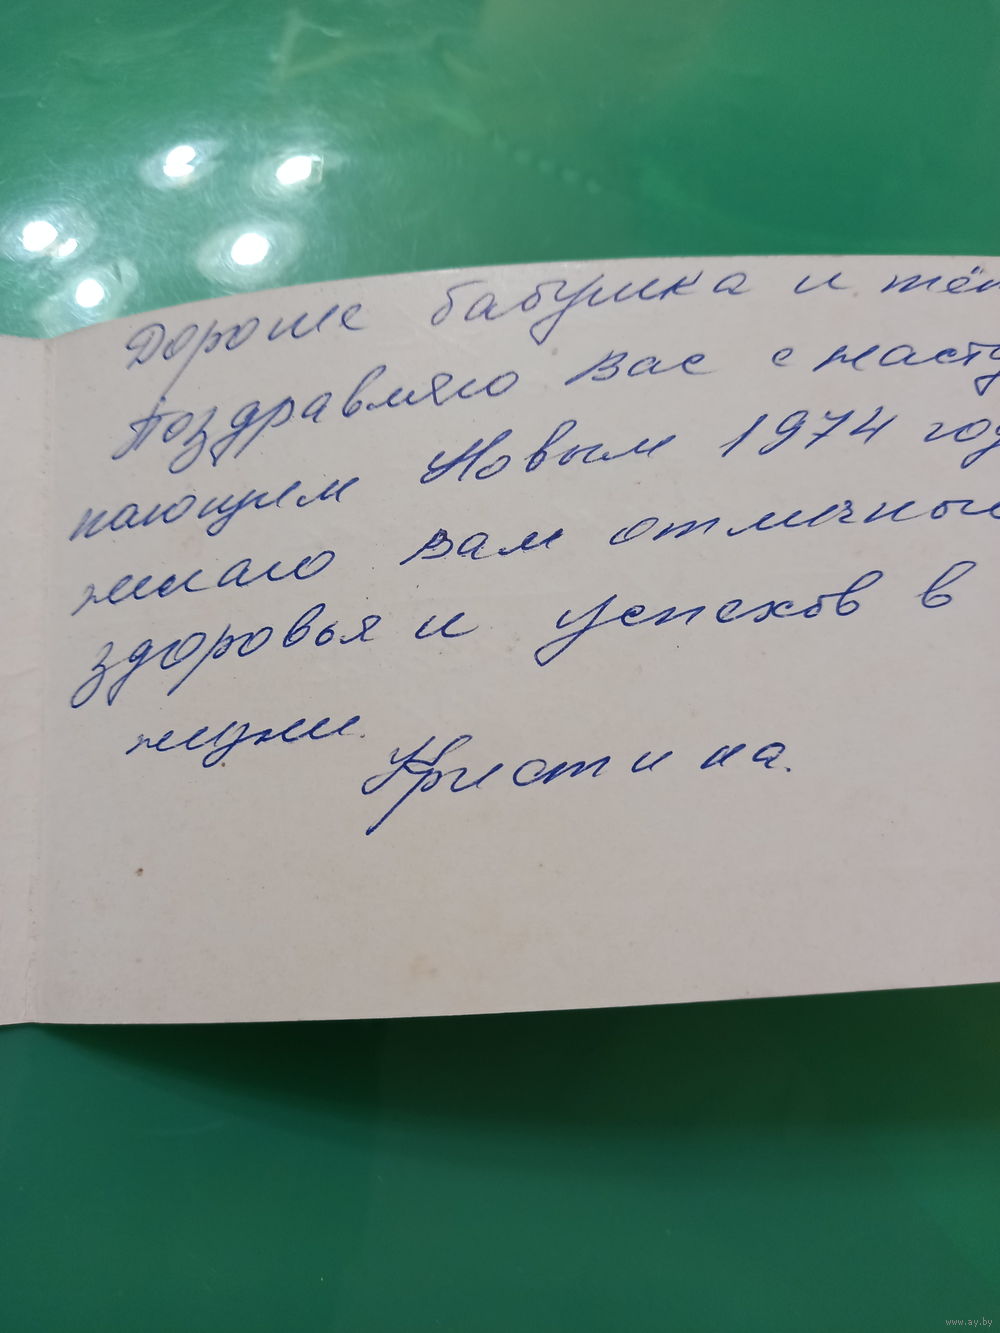 Дорогие бабушка и тёт
Поздравляю Вас с насту
пающим Новым 1974 год
желаю Вам отличного
здоровья и успехов в
жизни.
Кристина.
www.ay.by